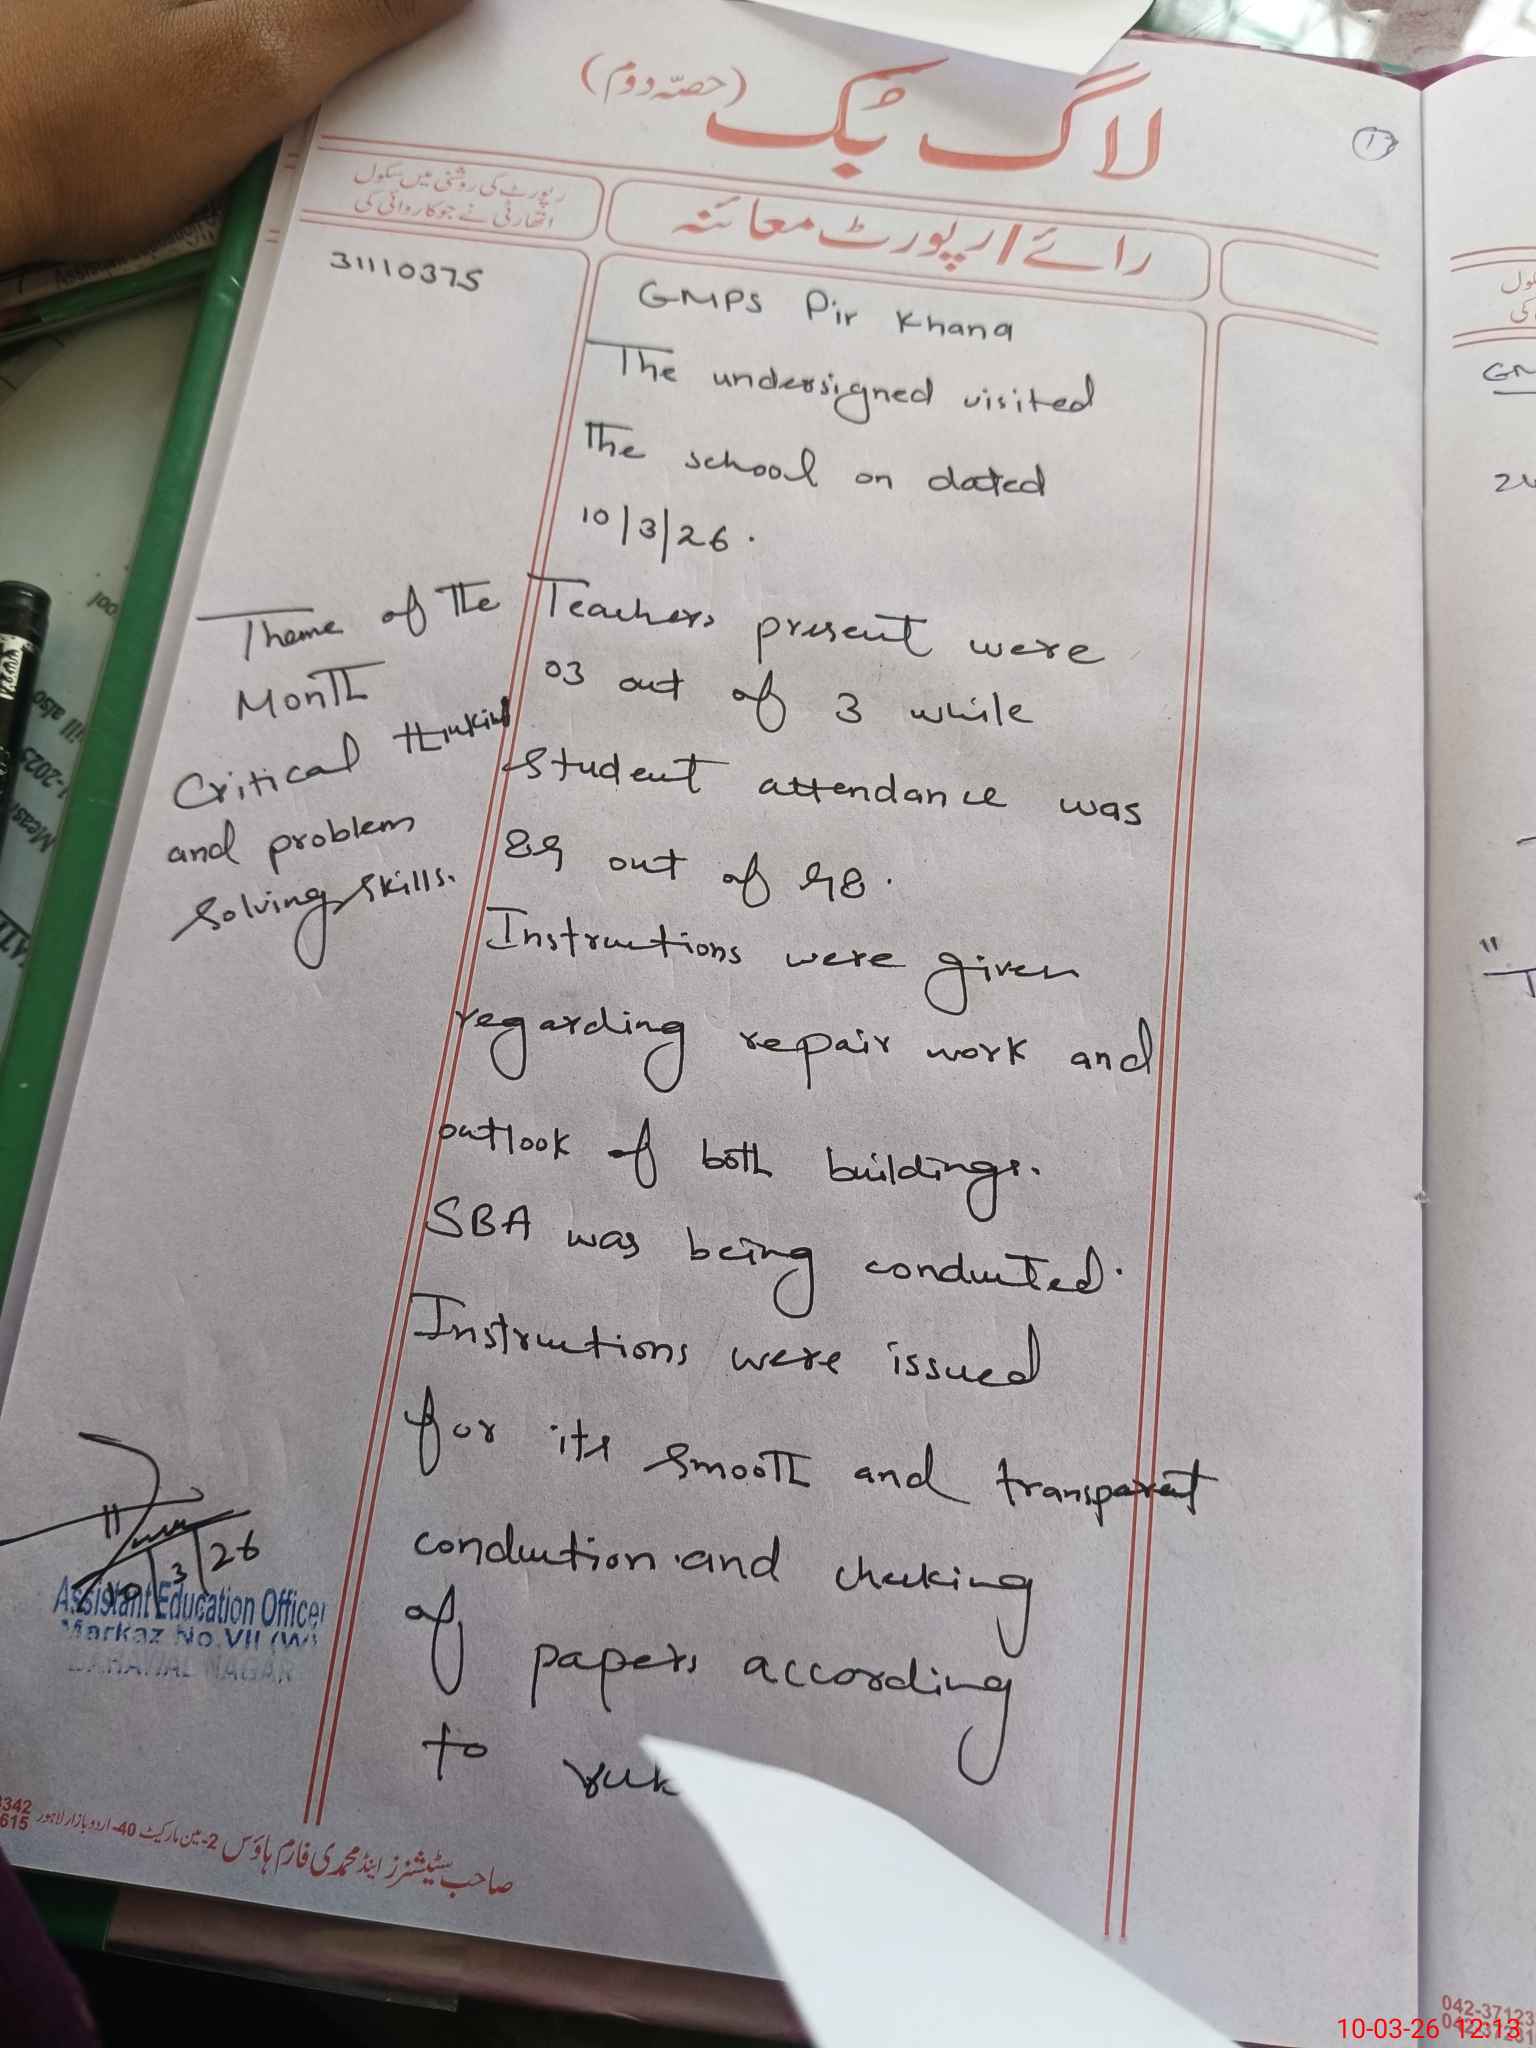 لاگ بُک (حصّہ دوم)
رپورٹ کی روشنی میں سکول
اتھارٹی نے جو کاروائی کی
رائے / رپورٹ معائنہ
31110375
GMPS Pir Khana
The undersigned visited
The school on dated
10/3/26.
Teachers present were
03 out of 3 while
student attendance was
89 out of 98.
Instructions were given
regarding repair work and
outlook of both buildings.
SBA was being conducted.
Instructions were issued
for its smooth and transparent
conduction and checking
of papers according
to
Theme of the
Month
Critical thinking
and problem
solving skills.
10/3/26
Assistant Education Officer
Markaz No.VII (W)
BAHAWAL NAGAR
صاحب سٹیشنرز اینڈ محمدی فارم ہاؤس 2-مین مارکیٹ 40-اردو بازار لاہور
342
615
GM
"
042-37123
10-03-26 12:13